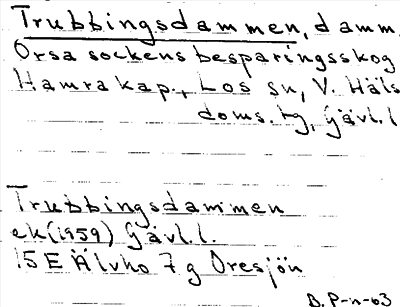 Trubbingsdammen, damm
Orsa sockens besparingsskog
Hamra kap., Los sn, V. Häls
doms. tg, Gävl. l
Trubbingsdammen
ek (1959) Gävl. l.
15 E Älvho 7 g Oresjön
B. P-n-63